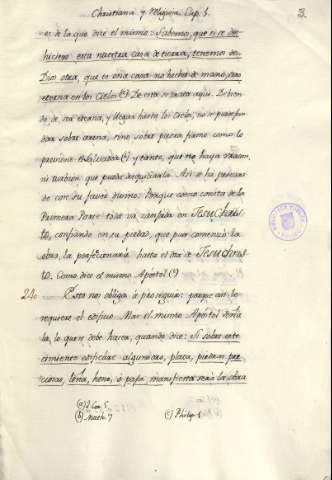 Christiana y Mistica Cap. 1.
3
es de la que dice el mismo: Sabemos, que si se des-
hiciere esta nuestra casa de tierra, tenemos de
Dios otra, que es una casa no hecha de mano, sino
eterna en los Cielos (a) De esta se trata aqui. Debien-
do de ser eterna, y llegar hasta los Cielos, no se puede fun-
dar sobre arena, sino sobre piedra firme como lo
previene el Salvador (b) y tanto, que no haya uracan,
ni turbion que pueda desquiciarla. Asi se ha
con su favor divino. Porque como consta de la
Primera Parte toda va fundada en Jesuchris-
to, confiando en su piedad, que pues comenzò la
obra, la perfeccionarà hasta el dia de Jesuchris-
to. Como dice el mismo Apostol (c)
24. Esto nos obliga à proseguir: porque asi lo
requiere el edificio. Mas el mismo Apostol señà
la, lo que se debe hacer, quando dice: Si sobre este
cimiento edificare alguno oro, plata, piedras pre-
ciosas, leña, heno, ò paja manifiesta serà la obra
(a) 2. Cor. 5
(b) Math. 7
(c) Philip. 1